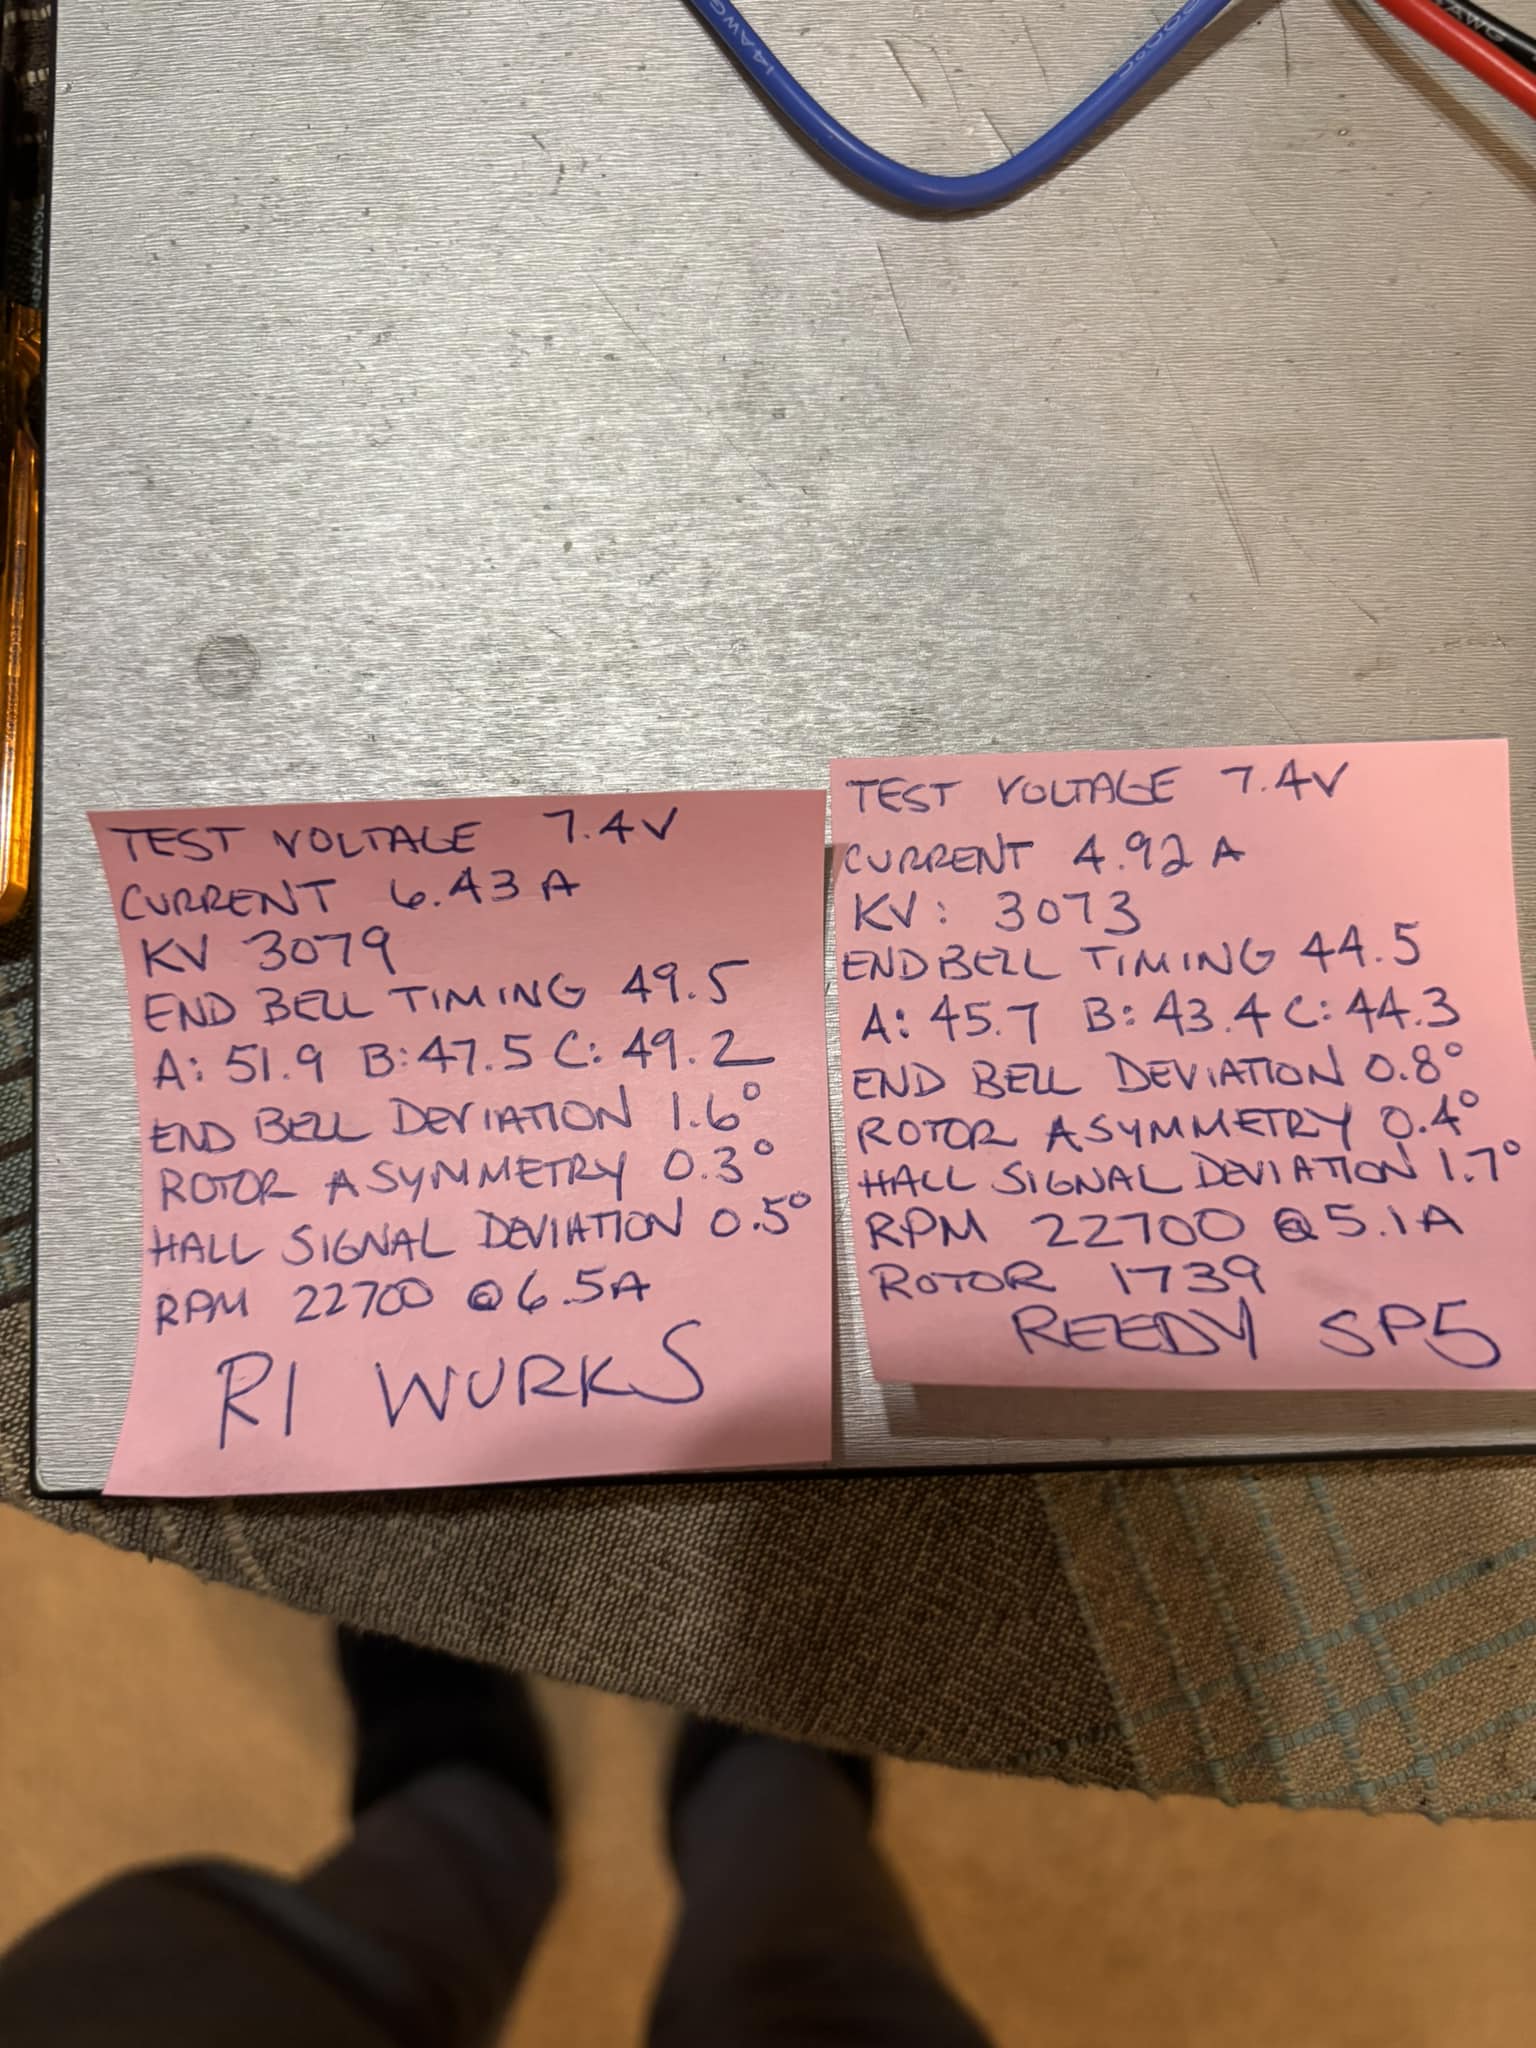 14AWG
200°C
TEST VOLTAGE 7.4V
CURRENT 6.43 A
KV 3079
END BELL TIMING 49.5
A: 51.9 B: 47.5 C: 49.2
END BELL DEVIATION 1.6°
ROTOR ASYMMETRY 0.3°
HALL SIGNAL DEVIATION 0.5°
RPM 22700 @ 6.5A
R1 WURKS
TEST VOLTAGE 7.4V
CURRENT 4.92 A
KV: 3073
ENDBELL TIMING 44.5
A: 45.7 B: 43.4 C: 44.3
END BELL DEVIATION 0.8°
ROTOR ASYMMETRY 0.4°
HALL SIGNAL DEVIATION 1.7°
RPM 22700 @ 5.1A
ROTOR 1739
REEDY SP5